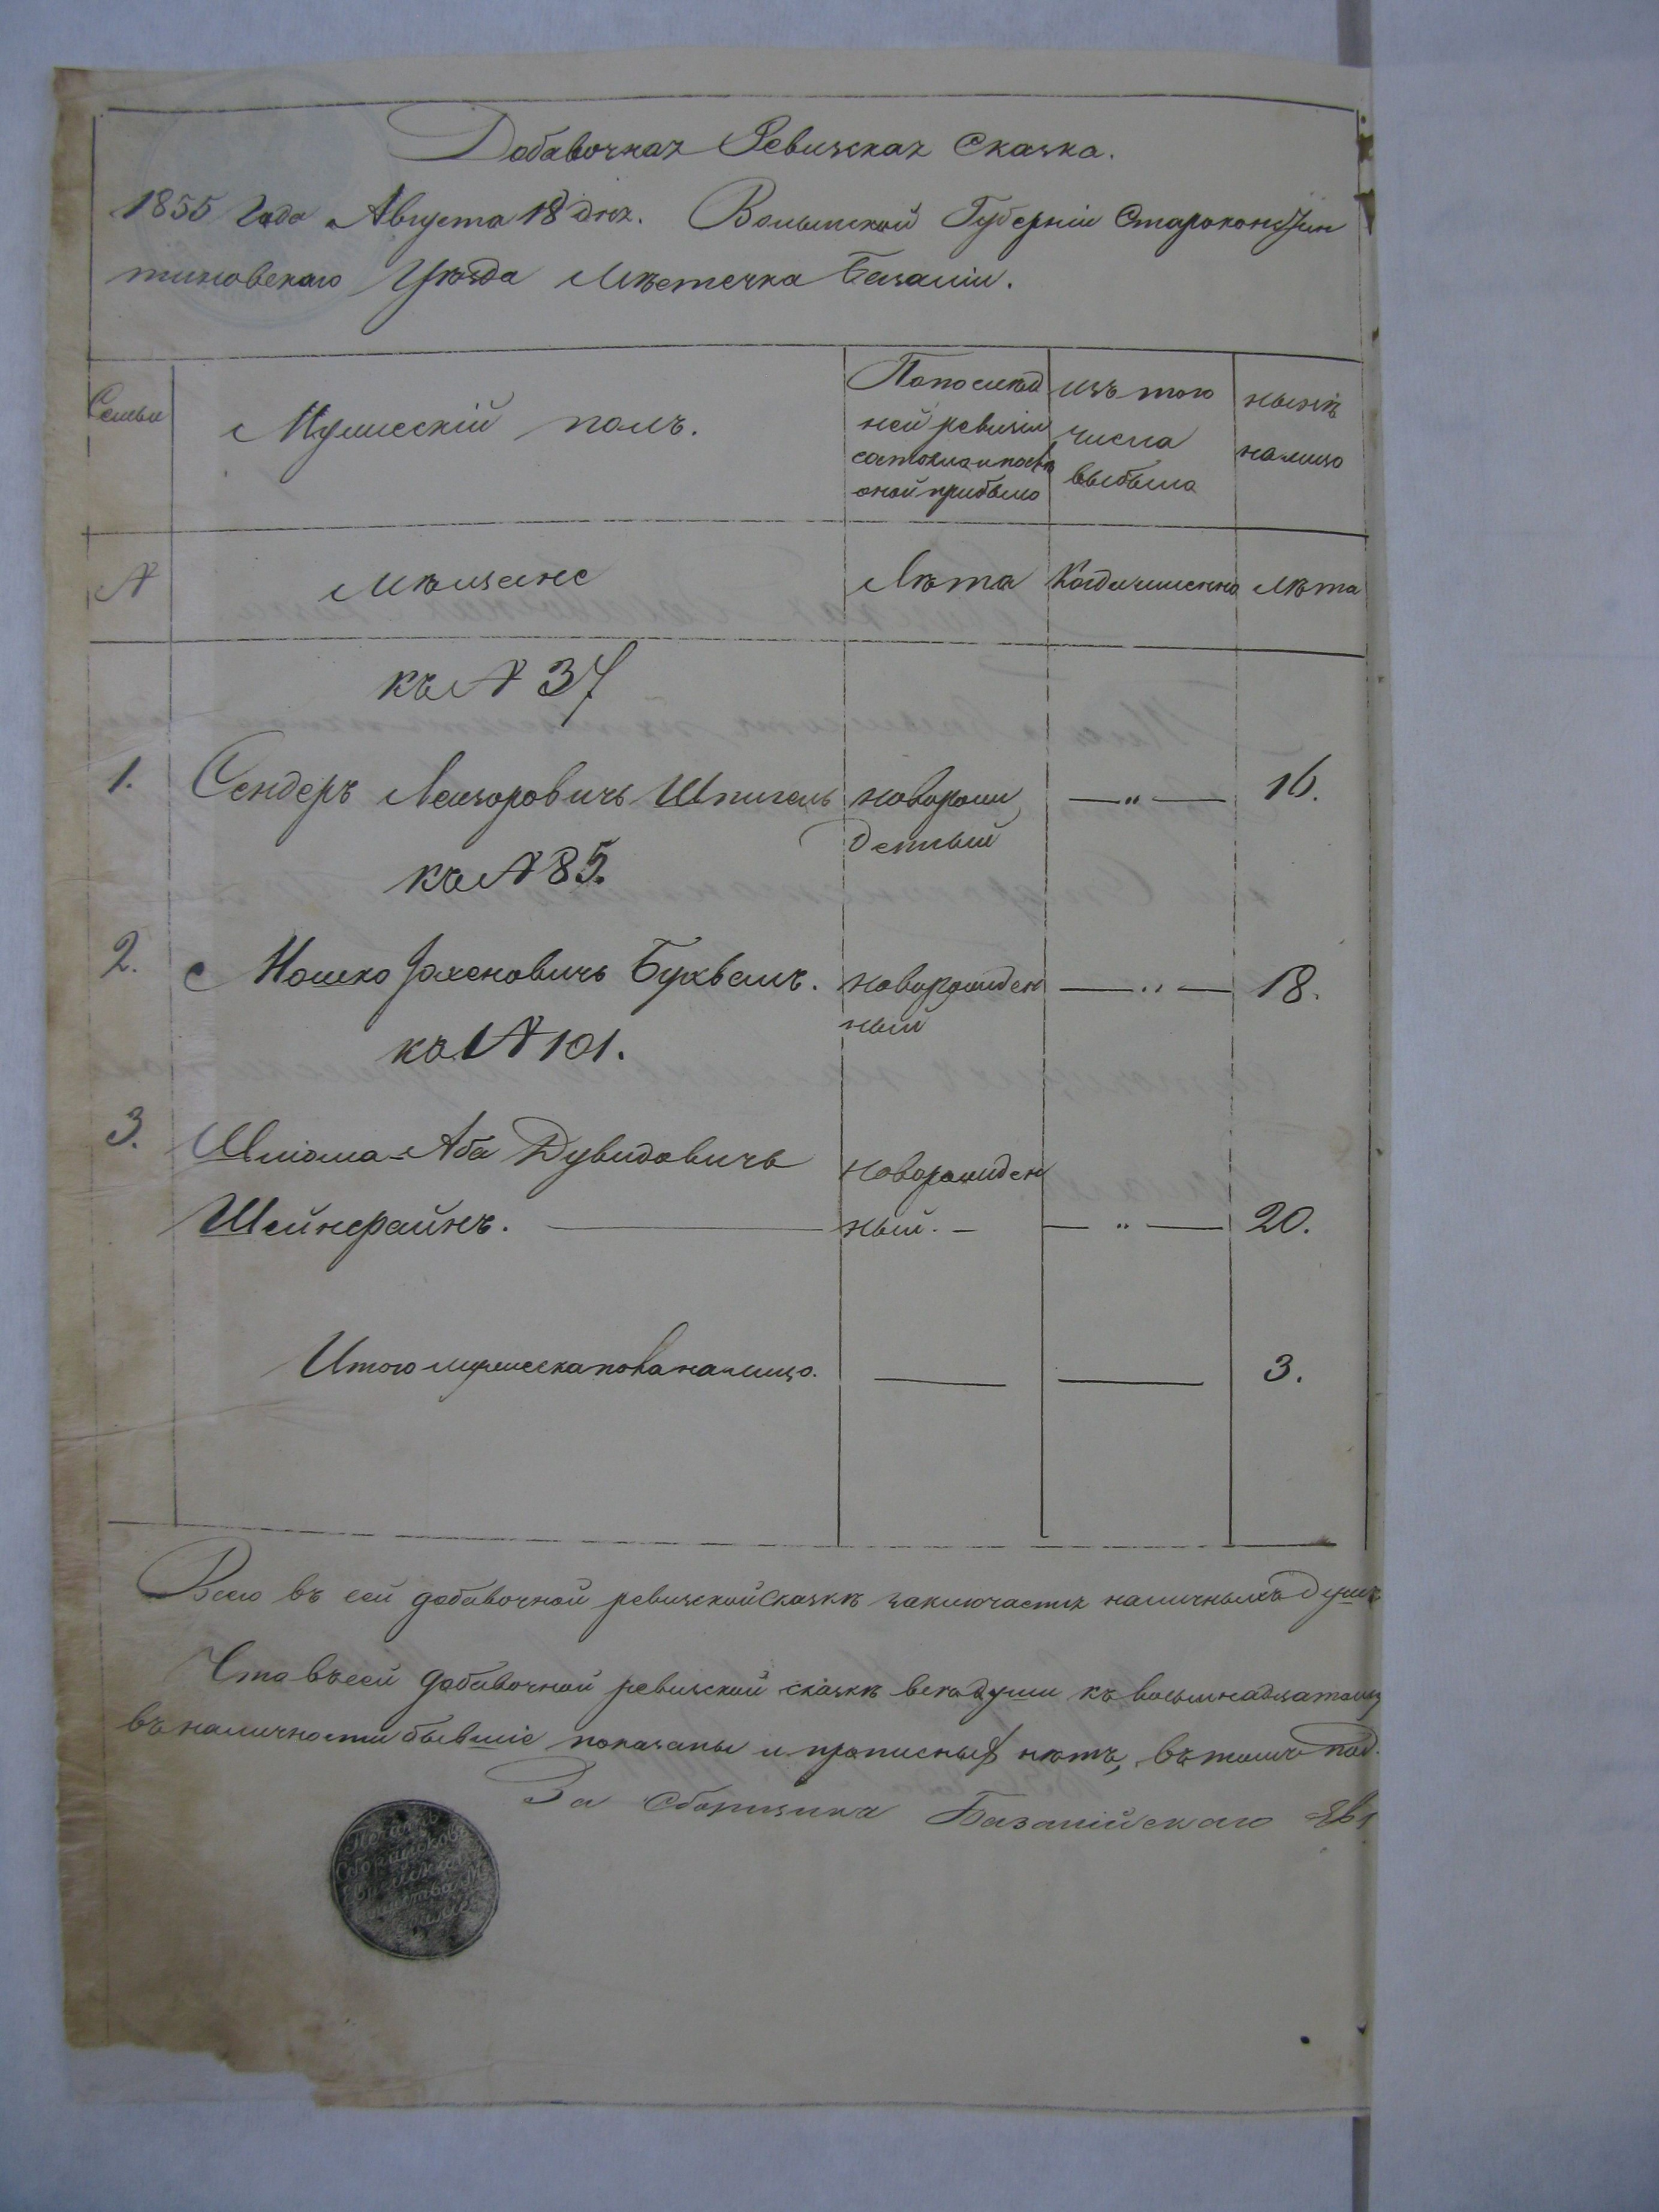 Добавочная Ревизская Сказка.
1855 Года Августа 18 дня. Волынской Губерніи Староконстан
тиновскаго Уѣзда Мѣстечка Базаліи.
Семьи
Мужескій полъ.
По послѣд
ней ревизіи
состояло и послѣ
оной прибыло
изъ того
числа
выбыло
нынѣ
налицо
№
Мѣщане
Лѣта
Когда именно
Лѣта
къ № 37
1. Сендеръ Лейзоровичъ Шпигель новорож — " — 16.
денный
къ № 85.
2. Мошко Іохеновичъ Буквалъ. новорожден — " — 18.
ный
къ № 101.
3. Шліома-Аба Дувидовичъ новорожден
Шейнфайнъ. ный. — — " — 20.
Итого мужеска пола налицо. 3.
Всего въ сей добавочной ревизской Сказкѣ заключается наличныхъ душъ
Что въ сей добавочной ревизской сказкѣ всѣ души къ восьмнадцатому
въ наличности бывшіе показаны и прописныхъ нѣтъ, въ томъ под.
За Сборщика Базалійскаго Ев